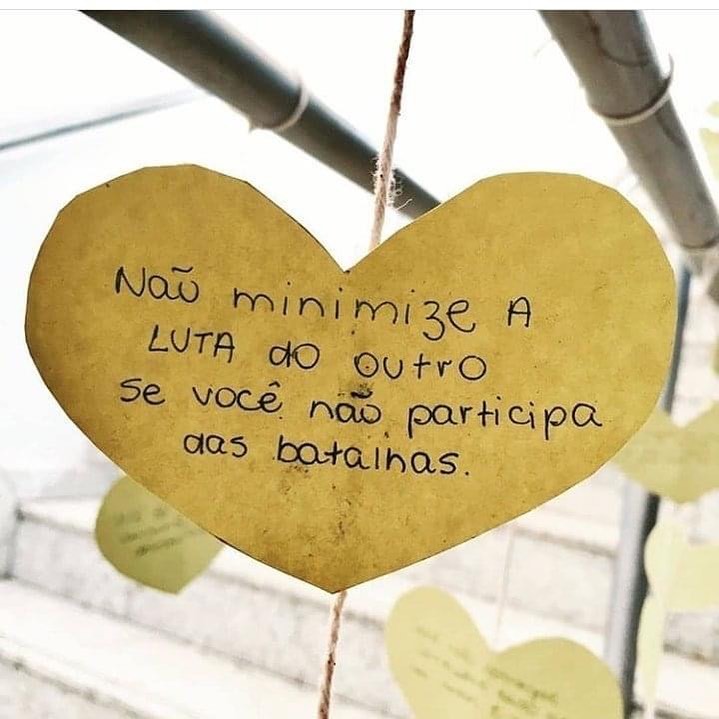 Não minimize A
LUTA do outro
se você não participa
das batalhas.